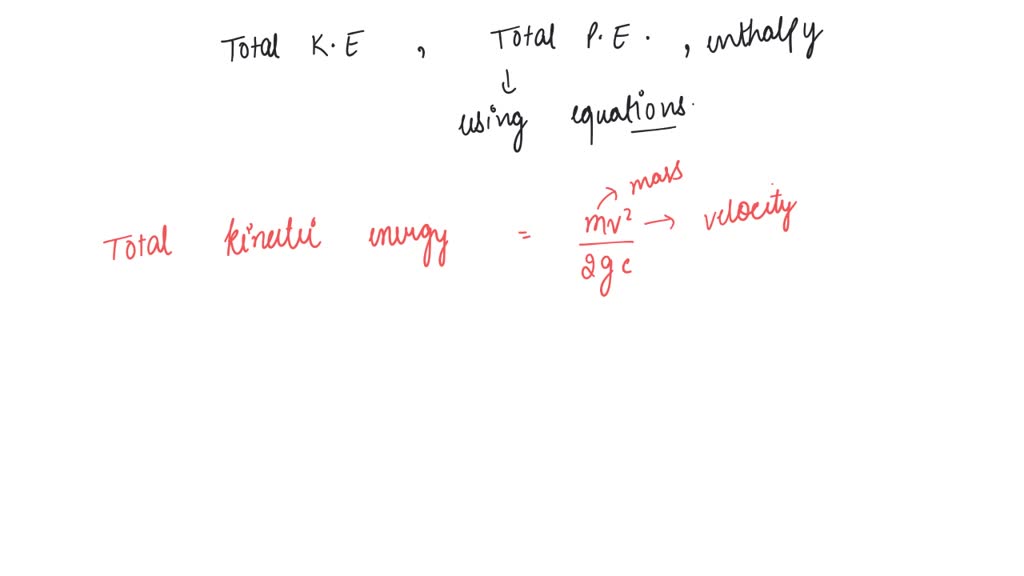 Total K.E , Total P.E. , enthalpy
↓
using equations.
mass
Total kinetic energy = mv²/2gc → velocity